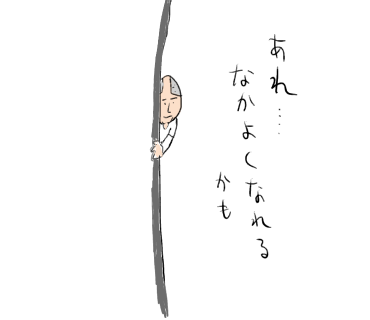 あれ……
なかよくなれる
かも